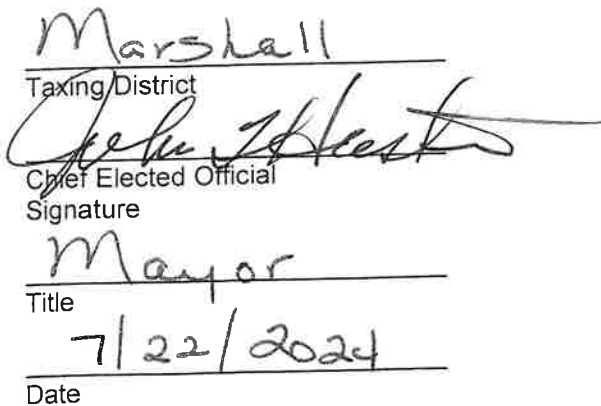 Marshall
Taxing District
John
Chief Elected Official
Signature
Mayor
Title
7/22/2024
Date